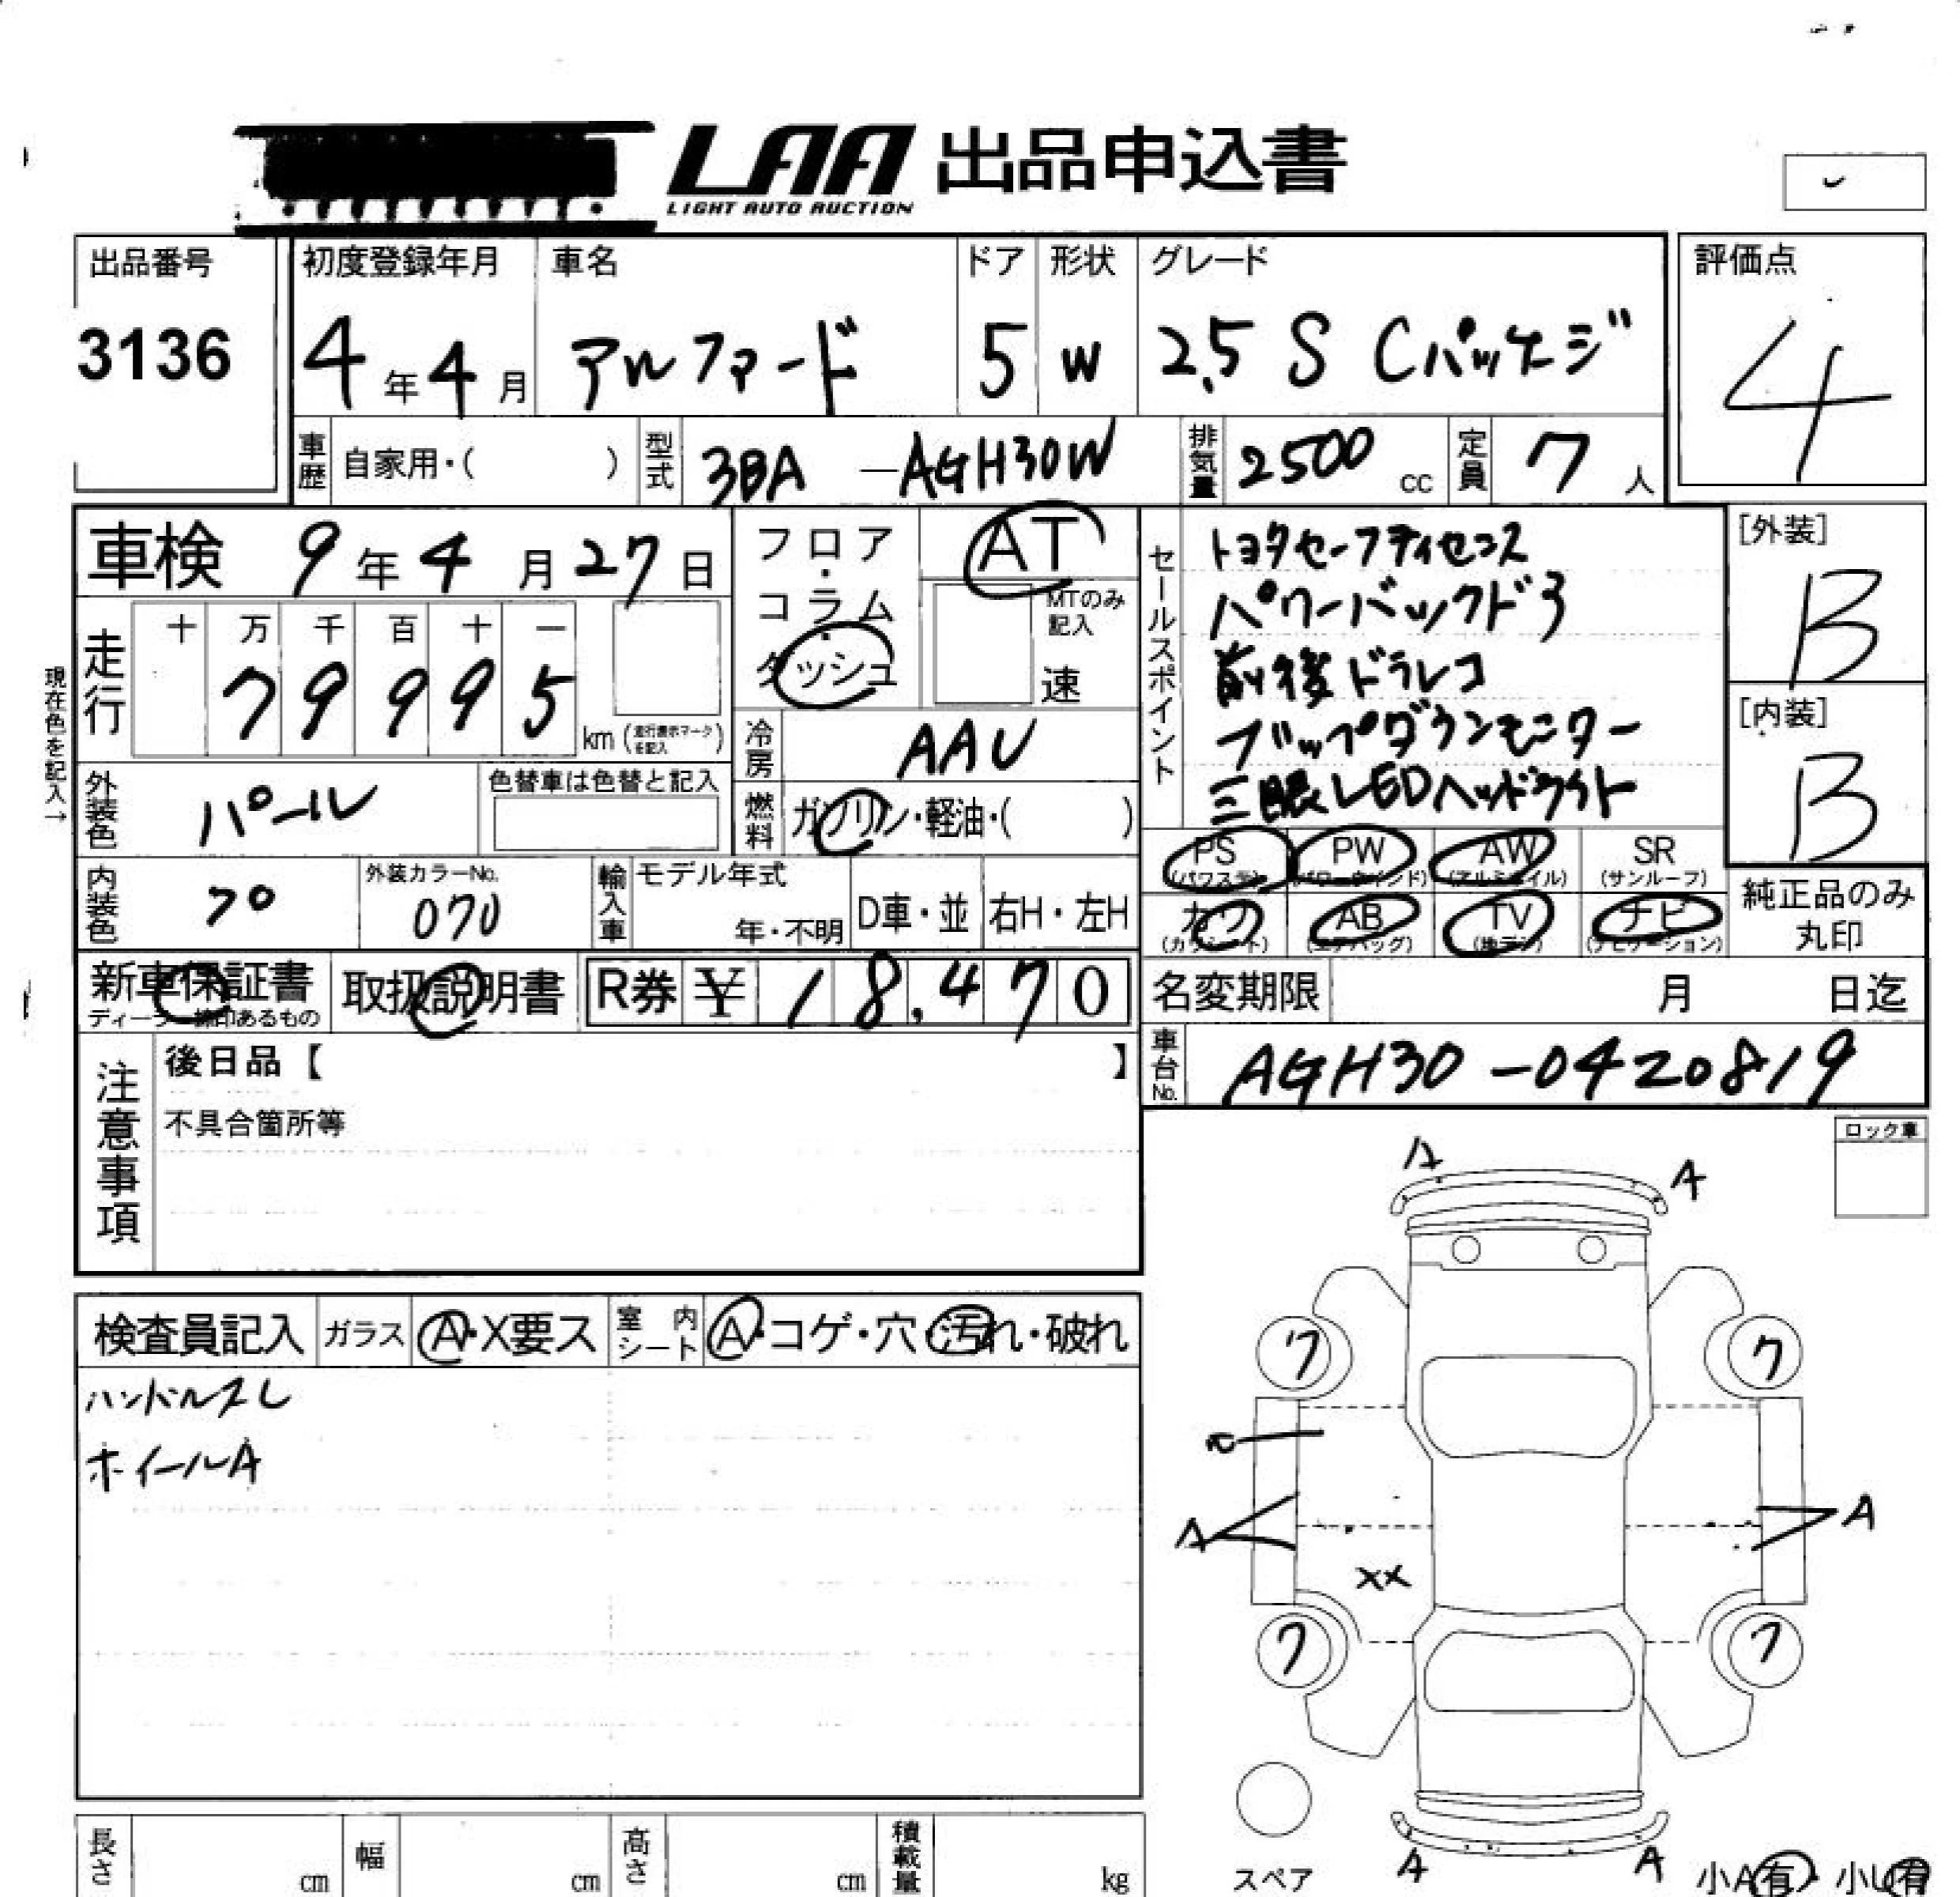 LAA 出品申込書
LIGHT AUTO AUCTION
出品番号
3136
初度登録年月
4年4月
車名
アルファード
ドア
5
形状
W
グレード
2.5 S Cパッケージ
評価点
4
車歴 自家用・( )
型式 3BA-AGH30W
排気量 2500 cc
定員 7人
車検 9年4月27日
フロア・コラム・ダッシュ
AT
MTのみ記入
速
走行
十 万 千 百 十 一
7 9 9 9 5
km (走行表示マークを記入)
現在色を記入→
冷房 AAU
外装色 パール
色替車は色替と記入
燃料 ガソリン・軽油・( )
内装色
外装カラーNo.
070
輸入車
モデル年式
年・不明
D車・並
右H・左H
新車保証書
取扱説明書
R券 ¥ 18,470
セールスポイント
トヨタセーフティセンス
パワーバックドア
前後ドラレコ
フリップダウンモニター
三眼LEDヘッドライト
[外装]
B
[内装]
B
PS (パワステ)
PW (パワーウインド)
AW (アルミホイル)
SR (サンルーフ)
カワ (カワシート)
AB (エアバッグ)
TV (地デジ)
ナビ (ナビゲーション)
純正品のみ丸印
名変期限 月 日迄
車台No. AGH30-0420819
注意事項
後日品【 】
不具合箇所等
検査員記入
ガラス A・X要ス
室内シート A・コゲ・穴・汚れ・破れ
ハンドルスレ
ホイールA
ロック車
A
A
ワ
ワ
A
A
XX
ワ
ワ
A
A
スペア
小A有・小U有
長さ cm
幅 cm
高さ cm
積載量 kg